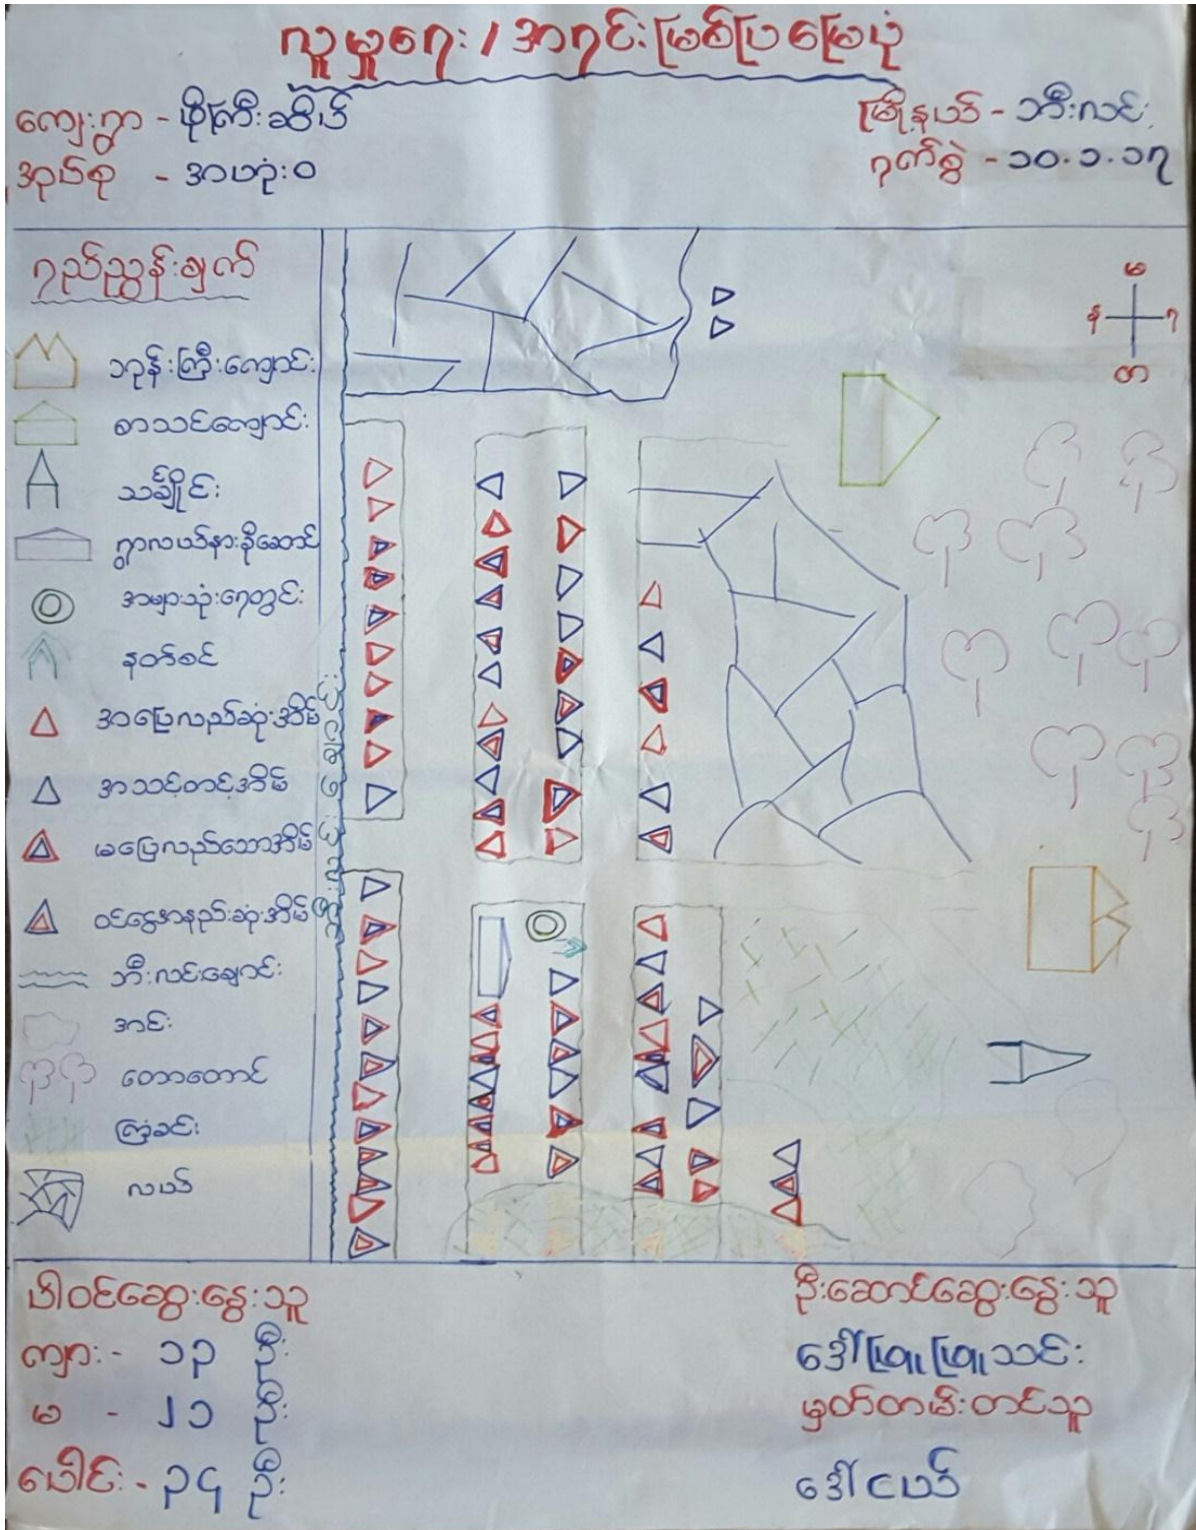 လူမှုရေး/အရင်းမြစ်ပြမြေပုံ
ကျေးရွာ - ဖိုကြီးဆိပ်
မြို့နယ် - ဘီးလင်း
အုပ်စု - အဟုံး၀
ရက်စွဲ - ၁၀.၁.၁၇
ရည်ညွှန်းချက်
ဘုန်းကြီးကျောင်း
စာသင်ကျောင်း
သင်္ချိုင်း
ရွာလယ်နားခိုဆောင်
အများသုံးရေတွင်း
နတ်စင်
အပြေလည်ဆုံးအိမ်
အသင့်တင့်အိမ်
မပြေလည်သောအိမ်
ဝင်ငွေအနည်းဆုံးအိမ်
ဘီးလင်းချောင်း
အင်း
တောတောင်
ကြံခင်း
လယ်
ဘီးလင်းချောင်း
မ
န
ရ
တ
ပါဝင်ဆွေးနွေးသူ
ကျား - ၁၃ ဦး
မ - ၂၁ ဦး
ပေါင်း - ၃၄ ဦး
ဦးဆောင်ဆွေးနွေးသူ
ဒေါ်ဖြူဖြူသင်း
မှတ်တမ်းတင်သူ
ဒေါ်ငယ်